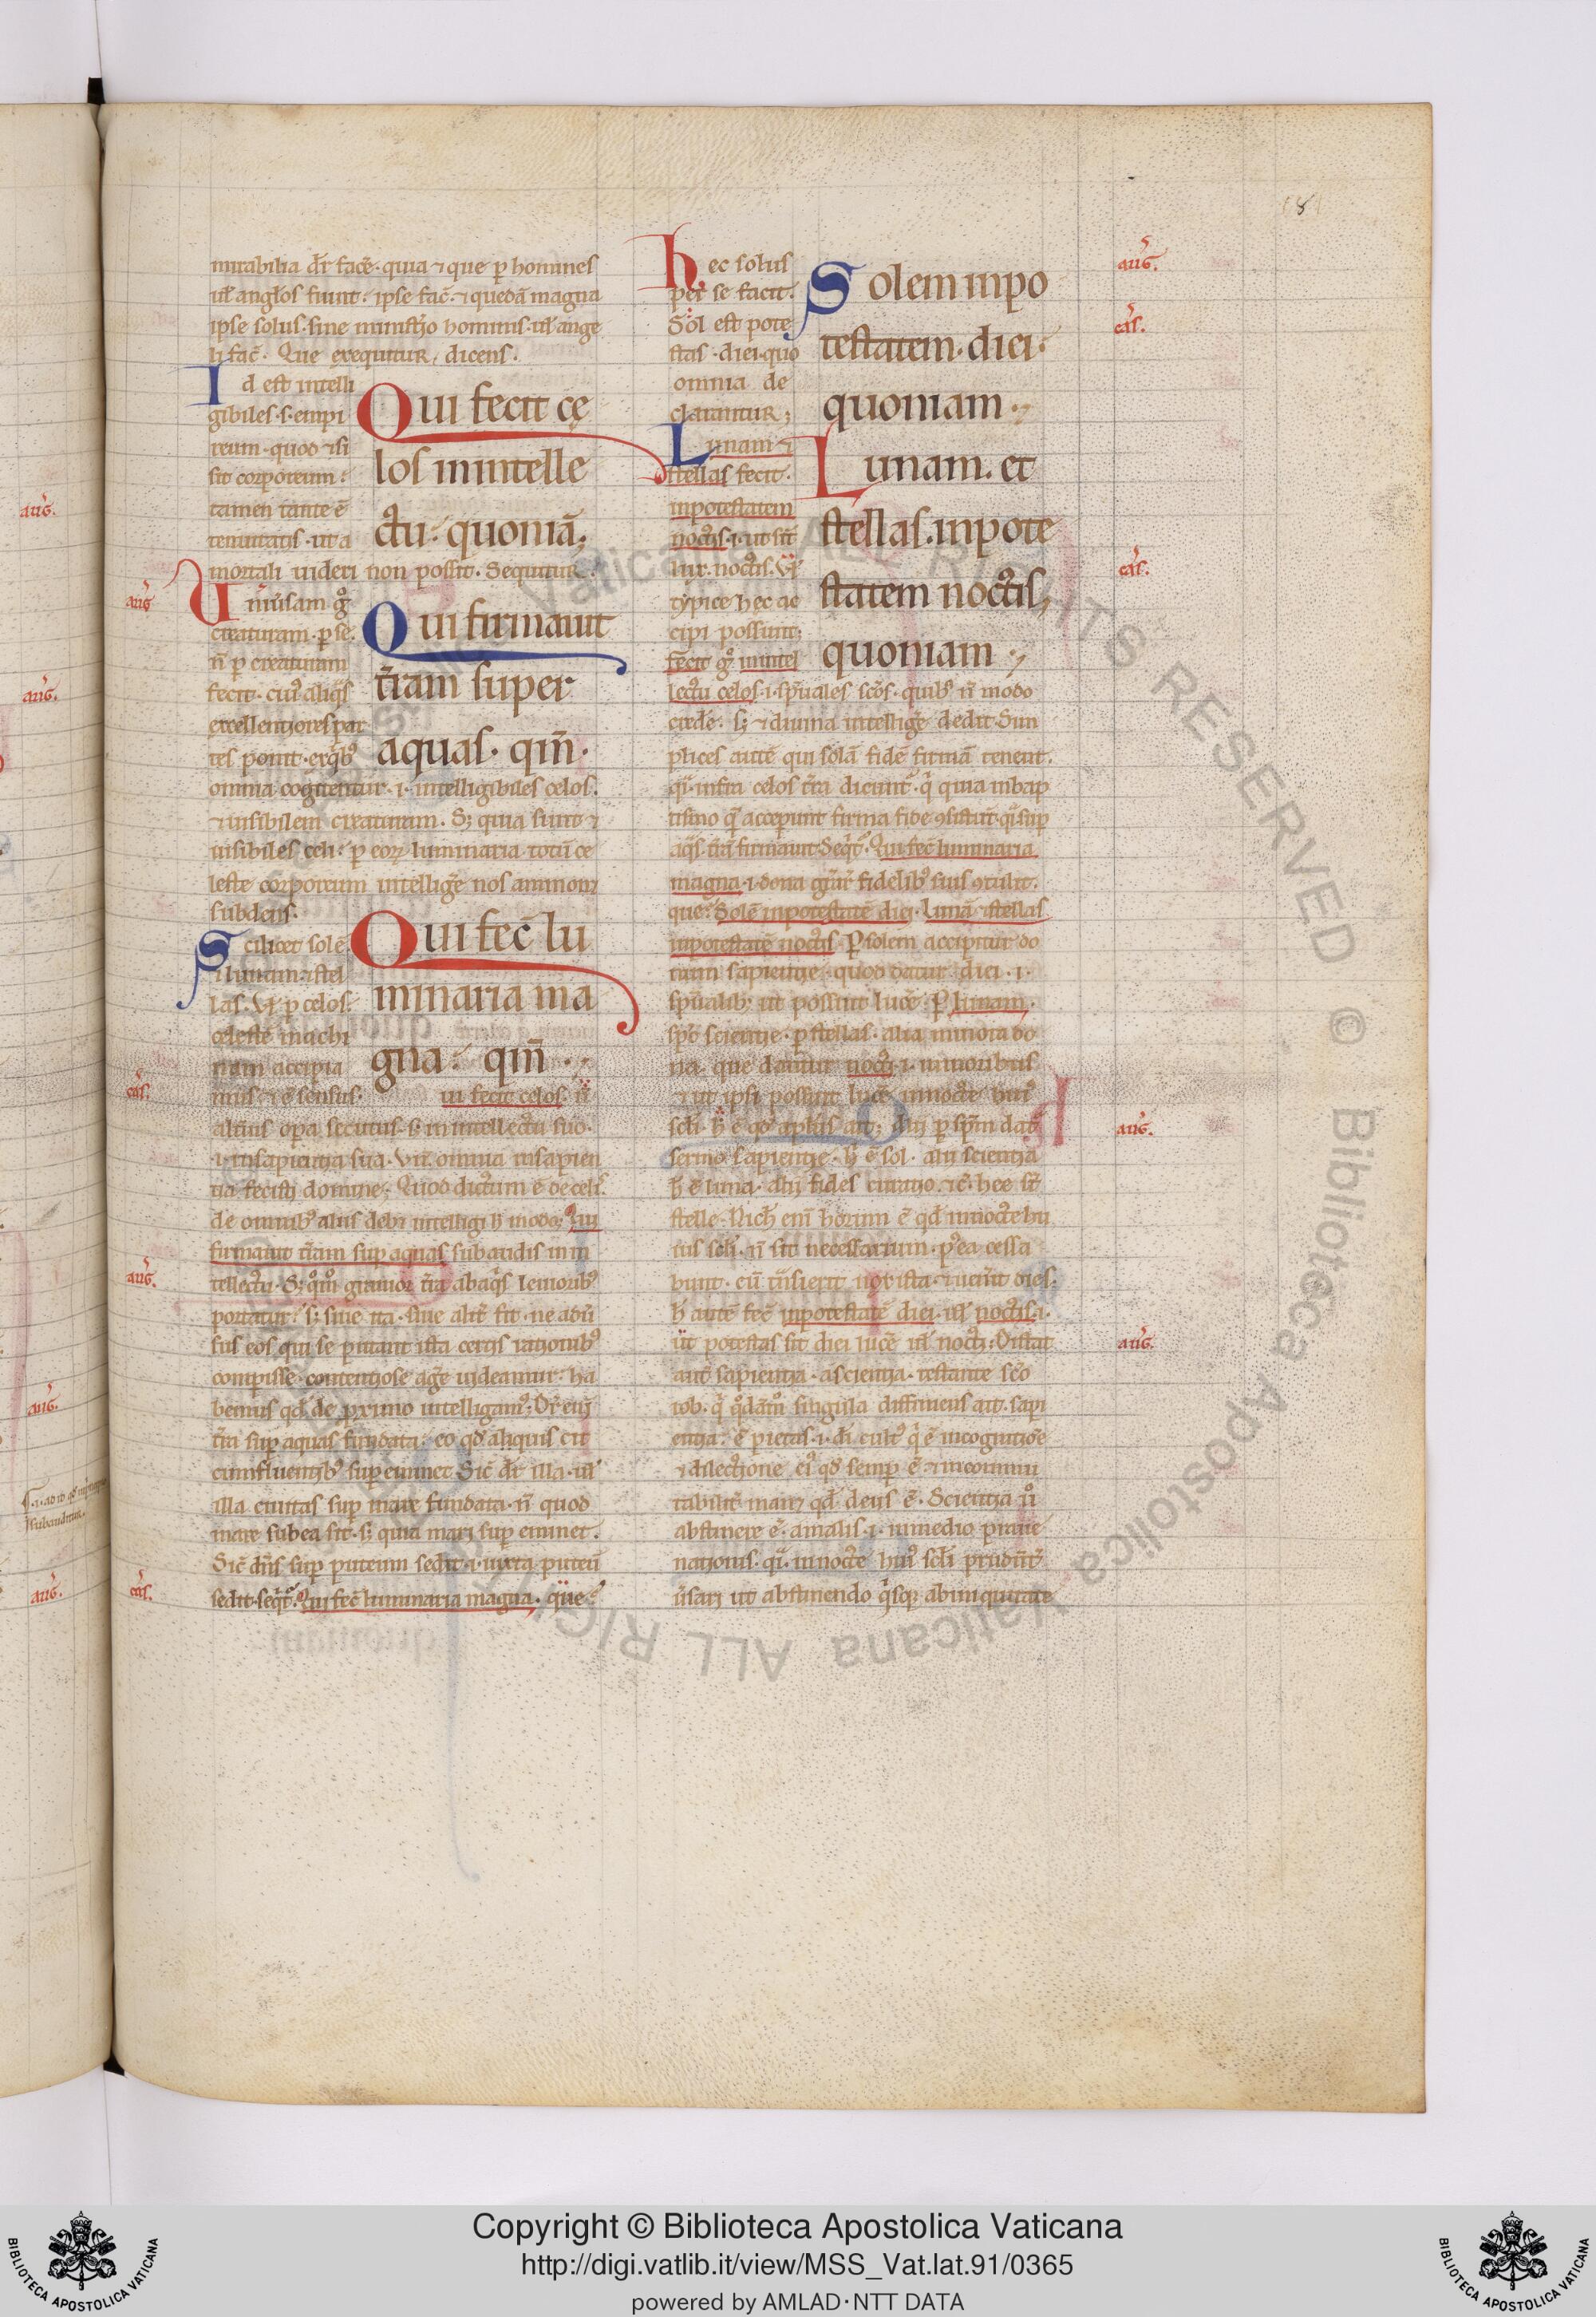 181
mirabilia dr̄ face᷒. quia ⁊ que ꝑ homines
ul̓ angl̓os fiunt. ipse fac̄. ⁊ quedā magna
ipse solus. sine minist̓io hominis. ul̓ ange
li fac̄. Que exequitur, dicens.
Id est intelli
gibiles. s. empi
reum. quod ⁊si
sit corporeum.
tamen tante ē
tenuitatis. ut a
mortali uideri non possit. Sequitur.
Qui fecit cę
los inintelle
ctu. quoniā;
aug̓
Uniūsam gͦ
creaturam. ꝑ se.
n̄ ꝑ creaturam
fecit. cui᷒ aliqᷤ
excellentiores par
tes ponit. ex qͥb᷒
omnia cogitentur. i. intelligibiles celos.
⁊ uisibilem creaturam. Sꝫ quia sunt ⁊
uisibiles celi. ꝑ eoꝝ luminaria totū ce
leste corporeum intellige᷒ nos ammon;
subdens.
Qui firmauit
t̄ram super
aquas. qm̄.
Scilicet solē
⁊ lunam ⁊ stel
las. Vl̓ ꝑ celos.
celestē machi
nam accipia
mus. ⁊ ē sensus.
Qui fec̄ lu
minaria ma
gna. qm̄.
cas̓.
ui fecit celos. n̄
alt̓ius oꝑa secutus. s. in intellectu suo.
i. in sapientia sua. Vn̄. omnia in sapien
tia fecisti domine; Quod dictum ē de celis.
de omnib᷒ aliis debꝫ intelligi h̓ modo; Qui
firmauit t̄ram suꝑ aquas subaudis in in
aug̓.
tellectu. Sꝫ qͦmͦ grauior t̄ra ab aqͥs leuiorib᷒
portatur. sꝫ siue ita. siue alit̓ sit. ne adū
sus eos qui se putant ista certis rationib᷒
comꝑisse. contentiose age᷒ uideamur. ha
bemus qd̓ de proximo intelligam᷒. Dr̄ enī
t̄ra suꝑ aquas fundata. eo qd̓ aliquis cir
cumfluentib᷒ suꝑeminet. Sic̄ dr̄ illa. ul̓
illa ciuitas suꝑ mare fundata. n̄ quod
mare sub ea sit. sꝫ quia mari suꝑ eminet.
Sic̄ dn̄s suꝑ puteum sedit. i. iuxta puteū
cas̓.
sedit. seqͥt̓. Qui fec̄ luminaria magna. que.
hec solus
per se facit.
Sol est pote
stas. diei. quo
omnia de
clarantur;
aug̓.
Solem inpo
testatem. diei.
quoniam.
cas̓.
Lunam ⁊
stellas fecit.
inpotestatem
noctis. i. ut sn̄t
lux. noctis. Vl̓
typice hec ac
cipi possunt;
Lunam. et
stellas. inpote
statem noctis,
quoniam
cas̓.
fecit gͦ inintel
lectu celos. i. sp̄uales sc̄os. quib᷒ n̄ modo
crede᷒. sꝫ ⁊ diuina intellige᷒ dedit. Sim
plices autē qui solā fidē firmā tenent.
qͣ. infra celos t̄ra dicunt̓. qͥ quia in bap
tismo qͣ accepunt firma fide ꝯsistūt. qͣ. suꝑ
aqͣs t̄rā firmauit. Seqͥt̓. Qui fec̄ luminaria
magna. i. dona gr̄ar̄ fidelib᷒ suis ꝯtulit.
que. Solē inpotestatē diei. Lunā ⁊ stellas
inpotestatē noctis. Ꝑ solem accipitur do
num sapientie. quod datur diei. i.
sp̄ualib; ut possint luce᷒. Ꝑ lunam.
sp̄c scientie. ꝑ stellas. alia minora do
na. que dantur nocti. i. minoribus
⁊ ut ipsi possint luce᷒ in nocte hui᷒
aug̓.
sc̄li. h̓ ē qd̓ apl̓us ait; Alii ꝑ sp̄m dat̓
sermo sapientie. h̓ ē sol. alii scientia
h̓ ē luna. alii fides curatio. ⁊c̄. hee sn̄t
stelle. Nich̓ enī horum ē qd̓ in nocte hu
ius sc̄li. n̄ sit necessarium. pͥea cessa
bunt. cū t̄nsierit nox ista. ⁊ uen̓it dies.
h̓ autē fec̄ inpotestatē diei. ul̓ noctis. i.
aug̓.
ut potestas sit diei luce᷒ ul̓ nocti; Distat
aut̄ sapientia. a scientia. testante sc̄o
iob. qͥ qͦdāmͦ singula diffiniens ait. sapi
entia. ē pietas. i. dī cult᷒ qͥ ē in cognitiōe
⁊ dilectione ei᷒ qd̓ semꝑ ē ⁊ incommu
tabilit̓ manꝫ qd̓ deus ē. Scientia uͦ
abstinere ē. a malis. i. in medio praue
nationis. qͣ. in nocte hui᷒ sc̄li prudn̄t̓
ūsari ut abstinendo qͥsqꝫ ab iniquitate
Copyright © Biblioteca Apostolica Vaticana
http://digi.vatlib.it/view/MSS_Vat.lat.91/0365
powered by AMLAD·NTT DATA
BIBLIOTECA APOSTOLICA VATICANA
BIBLIOTECA APOSTOLICA VATICANA